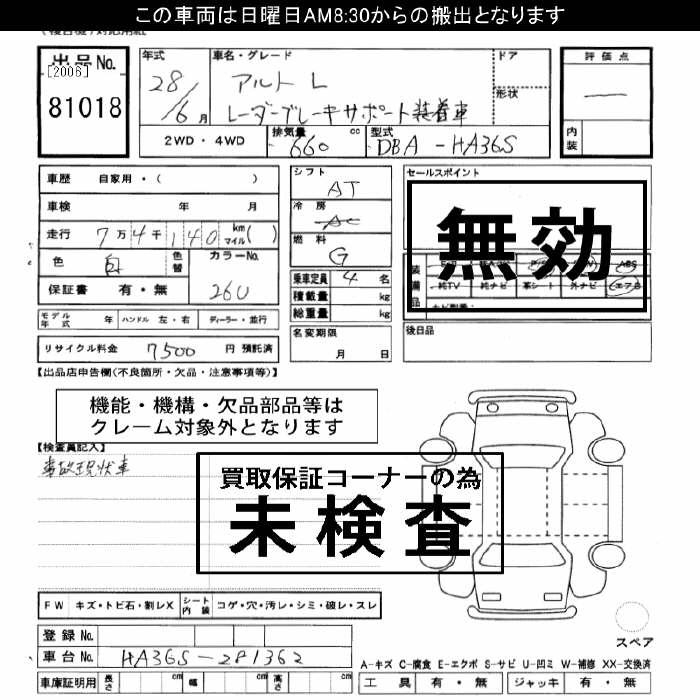 この車両は日曜日AM8:30からの搬出となります
出品No.
[2006]
81018
年式
28/6月
車名・グレード
アルト L
レーダーブレーキサポート装着車
ドア
形状
評価点
内装
2WD・4WD
排気量
660 cc
型式
DBA-HA36S
車歴 自家用・( )
車検 年 月
走行 7万4千140 km マイル( )
色 白 色替 カラーNo. 26U
保証書 有・無
シフト
AT
冷房
AC
燃料
G
乗車定員 4 名
積載量 kg
総重量 kg
セールスポイント
無効
装備品
純TV 純ナビ 革シート 外ナビ エアB
モデル年式 年 ハンドル 左・右 ディーラー・並行
名変期限
月 日
後日品
リサイクル料金 7500 円 預託済
【出品店申告欄(不良箇所・欠品・注意事項等)】
機能・機構・欠品部品等は
クレーム対象外となります
【検査員記入】
事故現状車
買取保証コーナーの為
未検査
FW キズ・トビ石・割レX シート内装 コゲ・穴・汚レ・シミ・破レ・スレ
スペア
登録No.
車台No. HA36S-281362
A-キズ C-腐食 E-エクボ S-サビ U-凹ミ W-補修 XX-交換済
車庫証明用 長さ cm 幅 cm 高さ cm
工具 有・無 ジャッキ 有・無